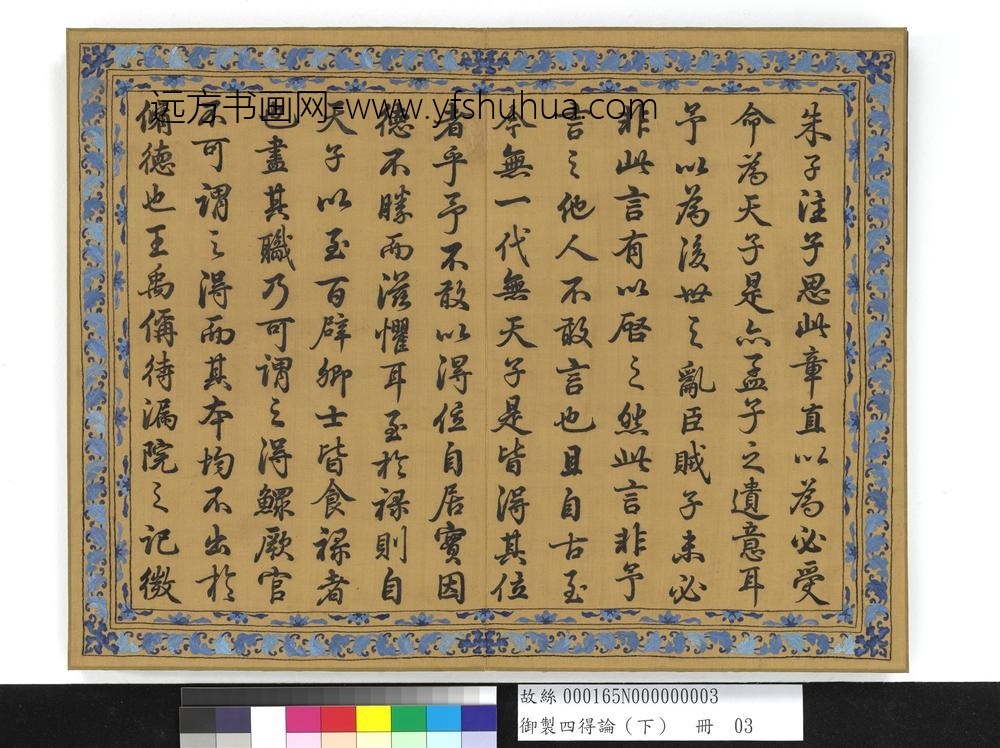 朱子注子思此章直以為必受
命為天子是亦孟子之遺意耳
予以為後世之亂臣賊子未必
非此言有以啓之然此言非予
言之他人不敢言也且自古至
今無一代無天子是皆得其位
者乎予不敢以得位自居實因
德不勝而滋懼耳至於祿則自
天子以至百辟卿士皆食祿者
也盡其職乃可謂之得鰥厥官
不可謂之得而其本均不出於
脩德也王禹偁待漏院之記微
远方书画网 www.yfshuhua.com
故絲000165N000000003
御製四得論(下) 冊 03